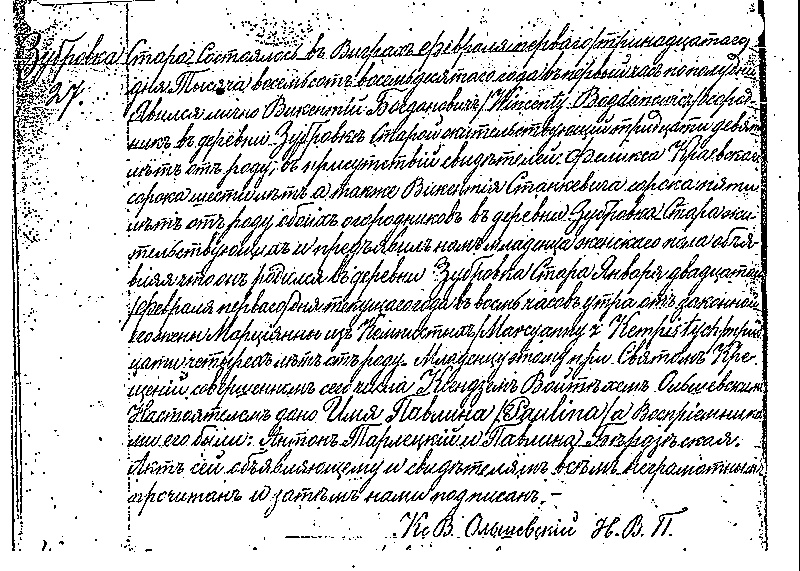 Зубровка Стара
27.
Состоялось въ Виграхъ февраля перваго/тринадцатаго/
дня Тысяча восемьсотъ восемьдесятаго года въ первый часъ по полудни
Явился лично Викентій Богдановичъ /Wincenty Bogdanowicz/ огород-
никъ въ деревни Зубровкѣ Старой жительствующій тридцати девяти
лѣтъ отъ роду, въ присутствіи свидѣтелей: Феликса Краевскаго
сорока шести лѣтъ а также Викентія Станкевича сорока пяти
лѣтъ отъ роду обоихъ огородниковъ въ деревни Зубровка Стара жи-
тельствующихъ и предъявилъ намъ младенца женскаго пола объя-
вляя что онъ родился въ деревни Зубровка Стара Января двадцатаго
/февраля перваго/ дня текущаго года въ восмь часовъ утра отъ законной
его жены Марціянны изъ Кемпистыхъ /Marcyanny z Kempistych/ трид-
цати четырехъ лѣтъ отъ роду. Младенцу этому при Святомъ Кре-
щеніи совершенномъ сего числа Ксендземъ Войтѣхомъ Ольшевскимъ
Настоятелемъ дано Имя Павлина /Paulina/ а Воспріемника-
ми его были: Антонъ Тарлецкій и Павлина
Актъ сей объявляющему и свидѣтелямъ всѣмъ неграмотнымъ
прочитанъ и затѣмъ нами подписанъ. –
Кс. В. Ольшевскій Н. В. П.